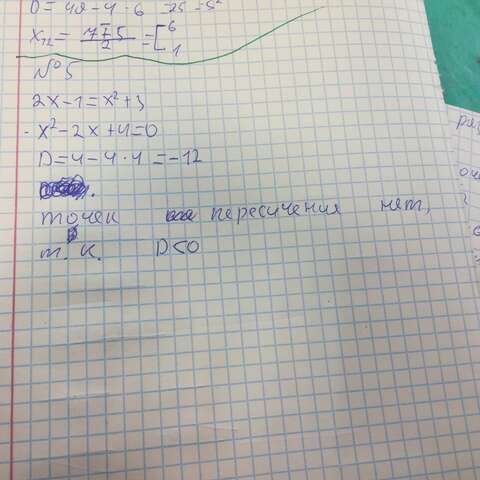 D = 49 - 4 · 6 = 25 = 5²
x₁,₂ = 7 ∓ 5 / 2 = [ 6 1
№ 5
2x - 1 = x² + 3
x² - 2x + 4 = 0
D = 4 - 4 · 4 = -12
точек пересичения нет,
т. к. D < 0